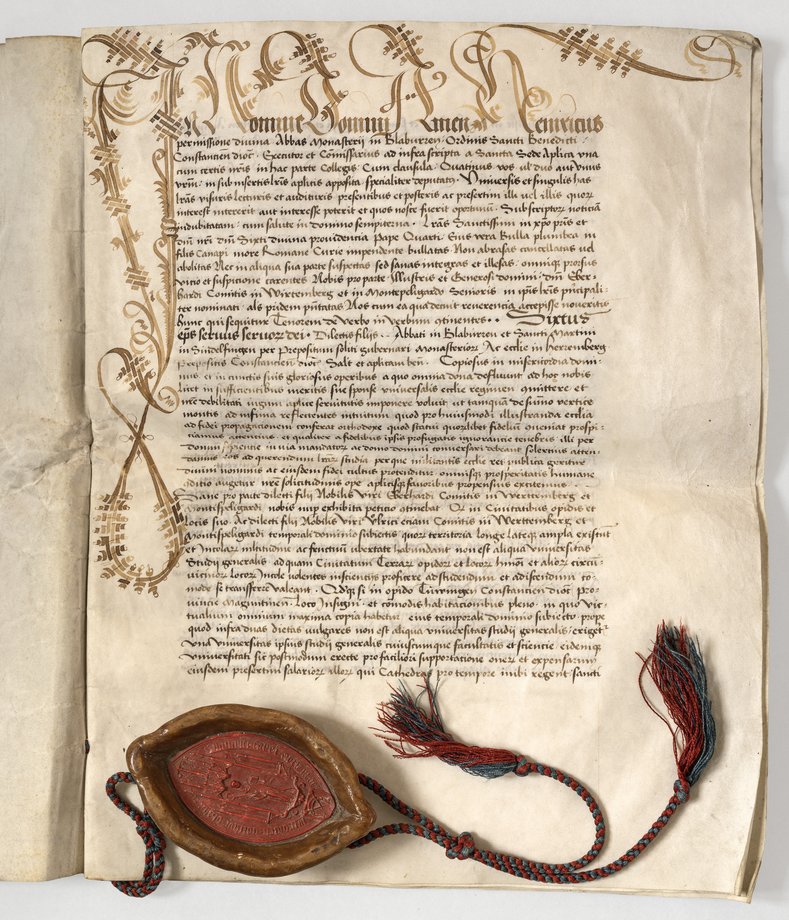 IN Nomine Domini Amen Heinricus
permissione divina Abbas Monasterii in Blaburren Ordinis Sancti Benedicti
Constancien dioc. Executor et Comissarius ad infrascripta a Sancta Sede Aplica vna
cum certis nris in hac parte Collegis Cum clausula Quatinus vos vel duo aut vnus
vrm in subinsertis lris aplicis apposita specialiter deputatq Vniuersis et singulis has
lras visuris lecturis et audituris presentibus et posteris ac presertim illi vel illis quor
interest intererit aut interesse poterit et quos nosse fuerit oportunu Subscriptor noticia
indubitatam cum salute in domino sempiterna Lras Sanctissimi in xpo pris et
dni nri dni Sixti diuina prouidencia Pape Quarti Eius vera Bulla plumbea in
filis Canapi more Romane Curie impendente bullatas Non abrasas cancellatas vel
abolitas Nec in aliqua sua parte suspectas sed sanas integras et illesas omniq prorsus
vicio et suspicione carentes Nobis pro parte Illustris et Generosi domini dni Eber
hardi Comitis in Wirtemberg et in Montepeligardo Senioris in ipsis lris principali
ter nominati als pridem pntatas Nos cum ea qua decuit reuerencia accepisse noueritis
hunc qui sequitur Tenorem de verbo in verbum cotinentes Sixtus
eps seruus seruor dei Dilectis filijs Abbati in Blaburren et Sancti Martini
in Sindelfingen per Prepositum soliti gubernari Monasterior Ac ecclie in herremberg
Prepositis Constancien dioc Salt et aplicam ben Copiosus in misericordia domi
nus et in cunctis suis gloriosus operibus a quo omnia dona defluunt ad hoc nobis
licet in sufficientibus meritis sue sponse vniuersalis ecclie regimen comittere et
nre debilitati iugum aplice seruitutis imponere voluit ut tamqua de summo vertice
montis ad infima reflectentes intuitum quod pro huiusmodi illustranda ecclia
ad fidei propagacionem conferat orthodoxe quod statui quorlibet fidelium conueniat prospi
ciamus attentius et qualiter a fidelibus ipsis profugatis ignorancie tenebris illi per
donum sapiencie in via mandator ac domo domini conuersari debeant solertius atten
damus eos ad querendum lrar studia per que militantis ecclie res publica geritur
diuini nominis ac eiusdem fidei cultus protenditur omnisq prosperitatis humane
conditio augetur nre solicitudinis ope aplicisq fauoribus propensius excitemus
Sane pro parte dilecti filij Nobilis viri Eberhardi Comitis in Wertemberg et
Montispeligardi nobis nup exhibita peticio cotinebat Q in Ciuitatibus opidis et
locis suis Ac dilecti filij Nobilis viri Vlrici etiam Comitis in Wertemberg et
Montispeligardi temporali dominio subiectis quor territoria longe lateq ampla existut
et Incolar multitudine ac fructuu vbertate habundant non est aliqua vniuersitas
Studij generalis ad quam Ciuitatum Terrar opidor et locor hmoi et alior circu
uicinor locor Incole volentes in scientiis proficere ad studendum et addiscendum co
mode se transferre valeant Qdq si in opido Tuwingen Constancien dioc Pro
uincie Maguntinen loco Insigni et comodis habitacionibus pleno in quo vic
tualium omnium maxima copia habetur eius temporali dominio subiecto prope
quod infra duas dietas vulgares non est aliqua vniuersitas studij generalis erigeret
vna vniuersitas ipsius studij generalis cuiuscumque facultatis et sciencie eidemq
vniuersitati sic postmodum erecte pro faciliori supportatione oner et expensarum
eiusdem presertim salarior illor qui Cathedras pro tempore inibi regent sancti